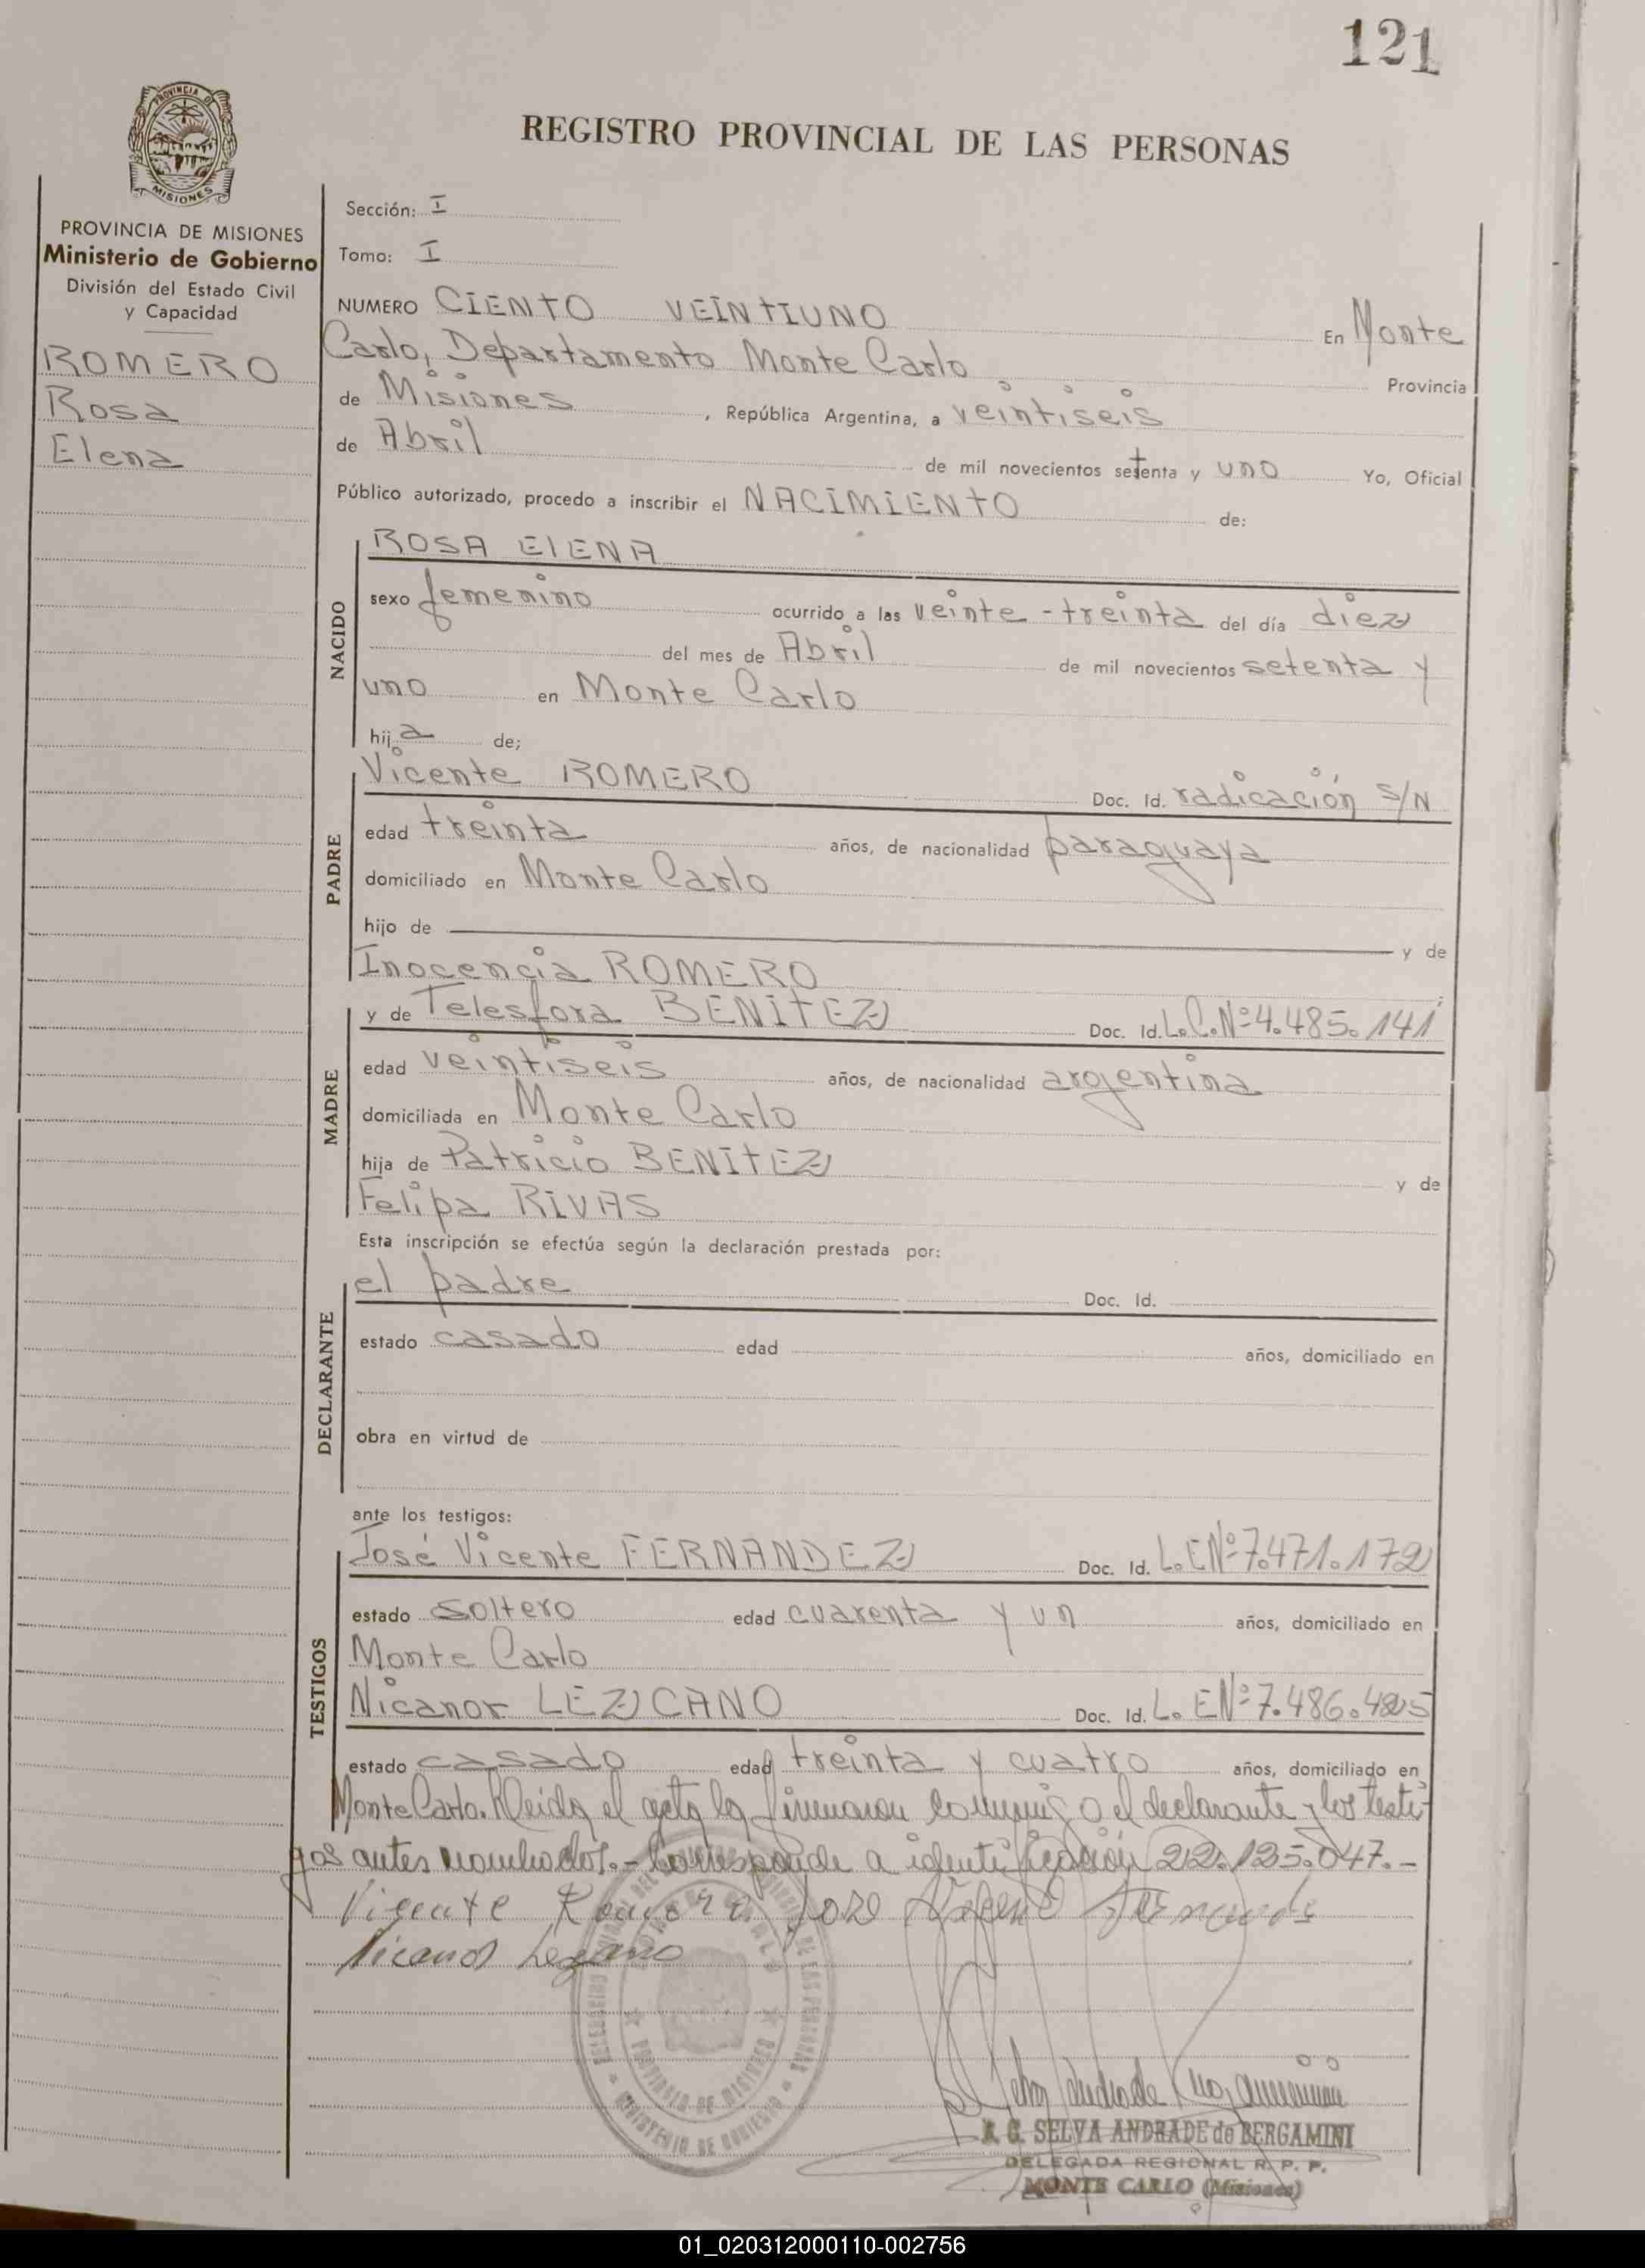 121
PROVINCIA DE
MISIONES
REGISTRO PROVINCIAL DE LAS PERSONAS
PROVINCIA DE MISIONES
Ministerio de Gobierno
División del Estado Civil
y Capacidad
ROMERO
Rosa
Elena
Sección: I
Tomo: I
NUMERO CIENTO VEINTIUNO En Monte
Carlo, Departamento Monte Carlo Provincia
de Misiones, República Argentina, a veintiseis
de Abril de mil novecientos setenta y uno Yo, Oficial
Público autorizado, procedo a inscribir el NACIMIENTO de:
NACIDO
ROSA ELENA
sexo femenino ocurrido a las veinte-treinta del día diez
del mes de Abril de mil novecientos setenta y
uno en Monte Carlo
hija de;
PADRE
Vicente ROMERO Doc. Id. radicación S/N
edad treinta años, de nacionalidad paraguaya
domiciliado en Monte Carlo
hijo de y de
Inocencia ROMERO
MADRE
y de Telesfora BENITEZ Doc. Id. L.C.Nº4.485.141
edad veintiseis años, de nacionalidad argentina
domiciliada en Monte Carlo
hija de Patricio BENITEZ y de
Felipa RIVAS
Esta inscripción se efectúa según la declaración prestada por:
DECLARANTE
el padre Doc. Id.
estado casado edad años, domiciliado en
obra en virtud de
ante los testigos:
TESTIGOS
José Vicente FERNANDEZ Doc. Id. L.ENº7.471.172
estado soltero edad cuarenta y un años, domiciliado en
Monte Carlo
Nicanor LEZCANO Doc. Id. L.ENº7.486.485
estado casado edad treinta y cuatro años, domiciliado en
Monte Carlo. Leida el acta la firmaron conmigo el declarante y los testi-
gos antes nombrados.- Corresponde a identificación 22.125.047.-
Vicente Romero Jose Vicente Fernandes
Nicanor Lezcano
PROVINCIA DE MISIONES
MINISTERIO DE GOBIERNO
SELVA ANDRADE de BERGAMINI
DELEGADA REGIONAL R. P. P.
MONTE CARLO (Misiones)
01_020312000110-002756